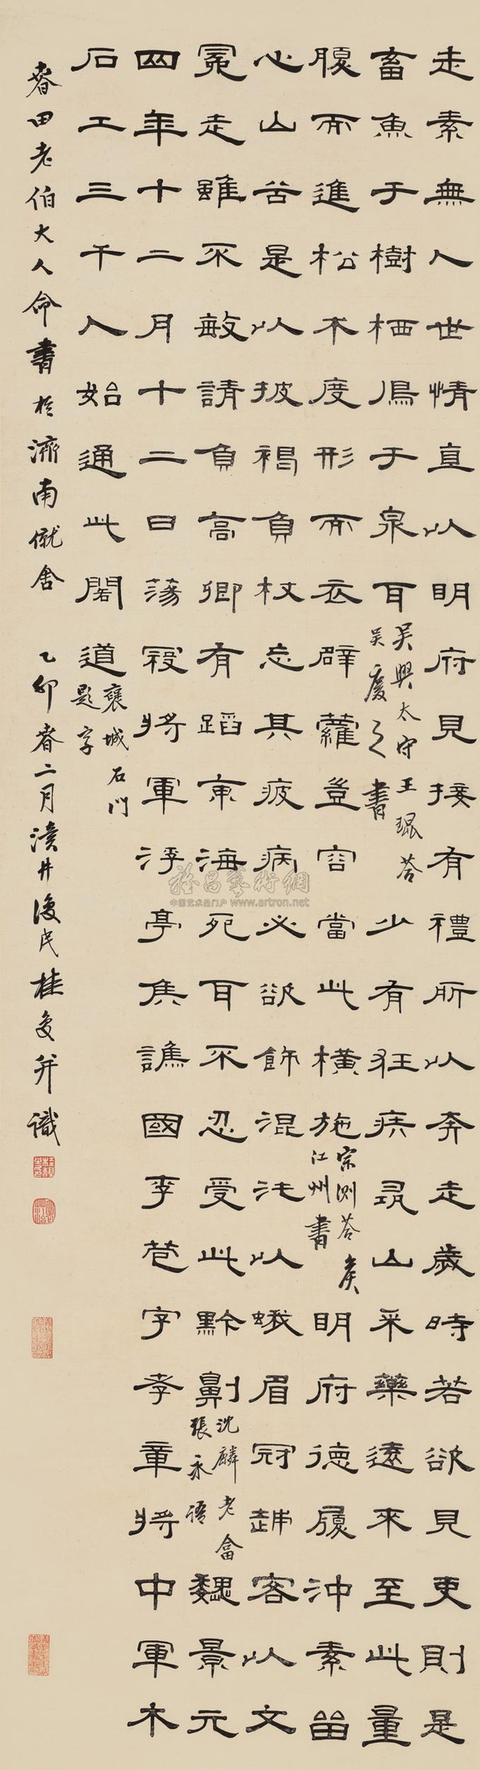 走素無人世情直以明府見接有禮所以奔走歲時若欲見吏則是
畜魚于樹栖鳥于泉耳
吳興太守王琨答
吳慶之書
少有狂疾尋山采藥遠來至此量
腹而進松朮度形而衣薜蘿豈容當此橫施
宗測答
江州書
明府德履沖素留
心山谷是以披褐負杖忘其疲病必欲飾混沌以蛾眉冠越客以文
冕走雖不敏請負高卿有蹈東海死耳不忍受此黔劓
沈麟
張永語
魏景元
四年十二月十二日蕩寇將軍浮亭矦譙國李苞字孝章將中軍木
石工三千人始通此閣道
襃城石門
題字
春田老伯大人命書於濟南僦舍 乙卯春二月瀆井復民桂馥并識
裕昌藝術網
中国艺术品门户网 www.artron.net